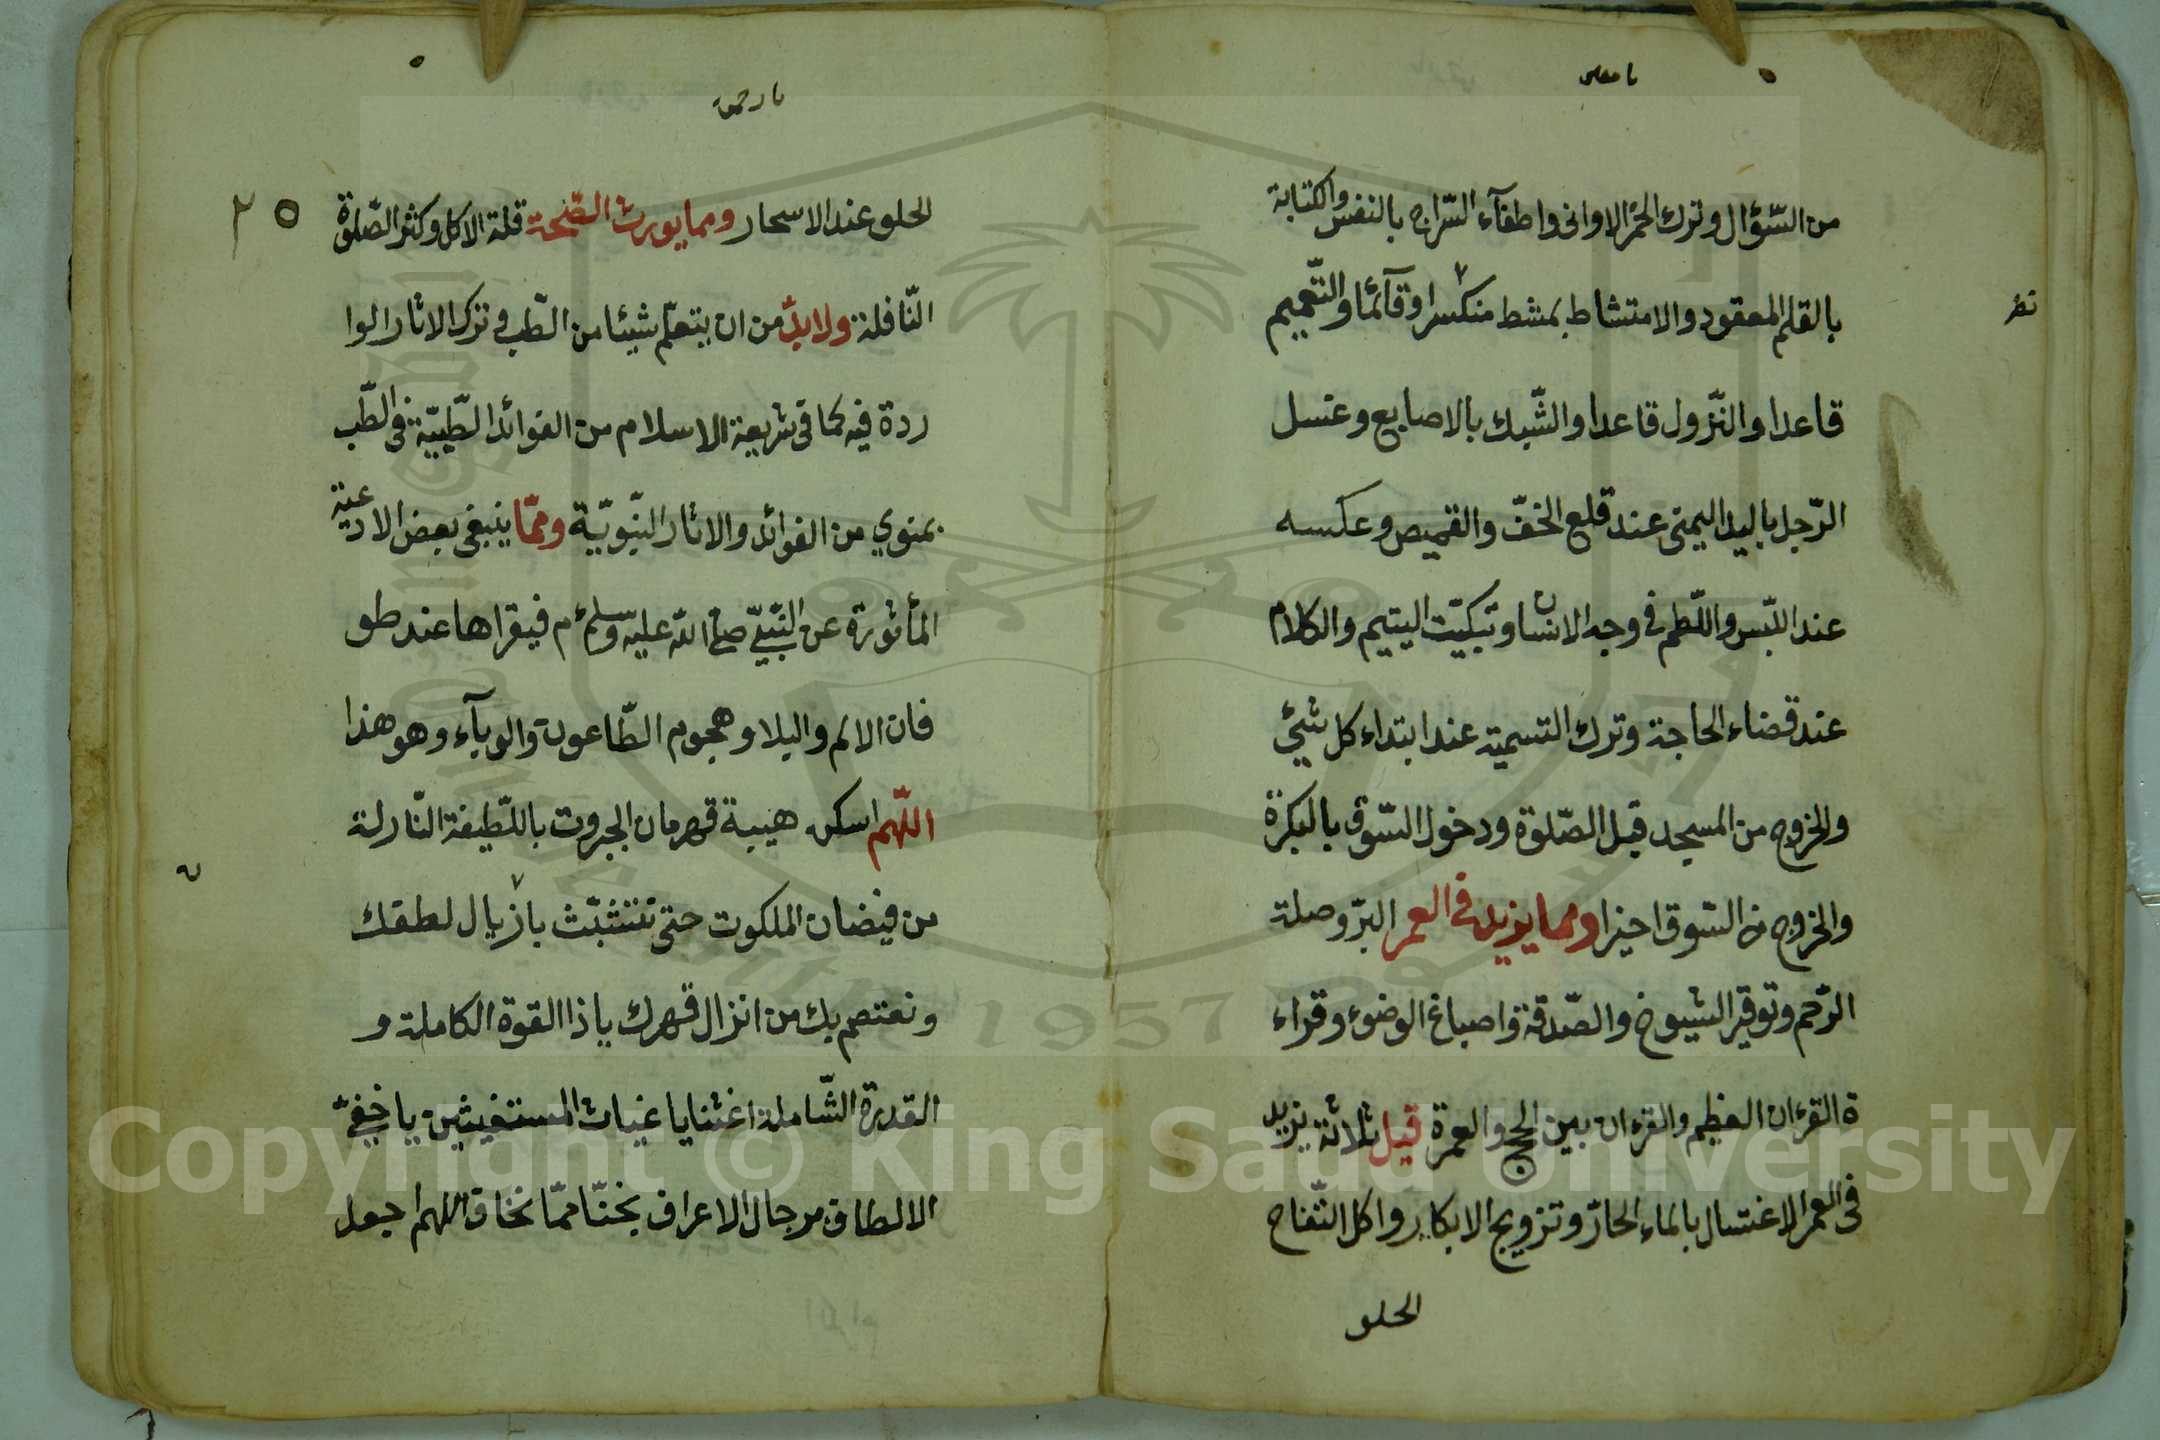 من السّؤال وترك الخمر الاوانى واطفآء السّراج بالنفس والكتابة
بالقلم المعقود والامتشاط بمشط منكسرا وقآئما والتّعميم
قاعدا والنّزول قاعدا والشّبك بالاصابع وغسل
الرّجل باليد اليمنى عند قلع الخفّ والقميص وعكسه
عند اللّبس واللّطم فى وجه الانسان وتبكيت اليتيم والكلام
عند قضاء الحاجة وترك التسمية عند ابتداء كل شيئ
والخروج من المسجد قبل الصّلوة ودخول السّوق بالبكرة
والخروج من السّوق اخيرا ومما يزيد فى العمر البرّ وصلة
الرّحم وتوقير الشيوخ والصّدقة واصباغ الوضوء وقراء
ة القرءان العظيم والقرءان بين الحج والعمرة قيل ثلاثة يزيد
فى العمر الاغتسال بالماء الحارّ وتزويج الابكار واكل التّفاح
الحلو
يا رحمن
٢٥
الحلو عند الاسحار ومما يورث الصّحة قلة الاكل وكثر الصّلوة
النّافلة ولا بدّ من ان يتعلّم شيئا من الطّب وتزك الاثار الوا
ردة فيه كما فى شريعة الاسلام من الفوائد الطّبيّة فى الطّب
بمنوي من الفوائد والاثار النّبويّة وممّا ينبغى بعض الادعية
المأثورة عن النّبيّ صلّى اللّه عليه وسلم فيقراها عند طو
فان الالم والبلا وهجوم الطّاعون والوبآء وهو هذا
اللّهم اسكن هيبة قهرمان الجبروت باللّطيفة النّازلة
من فيضان الملكوت حتى نتشبّث باذيال لطفك
ونعتصم بك من انزال قهرك يا ذا القوة الكاملة و
القدرة الشّاملة اغثنا يا غياث المستغيثين يا خفيّ
الالطاف من رجال الاعراف نجّنا ممّا نخاف اللهم اجعل
Copyright © King Saud University
1957